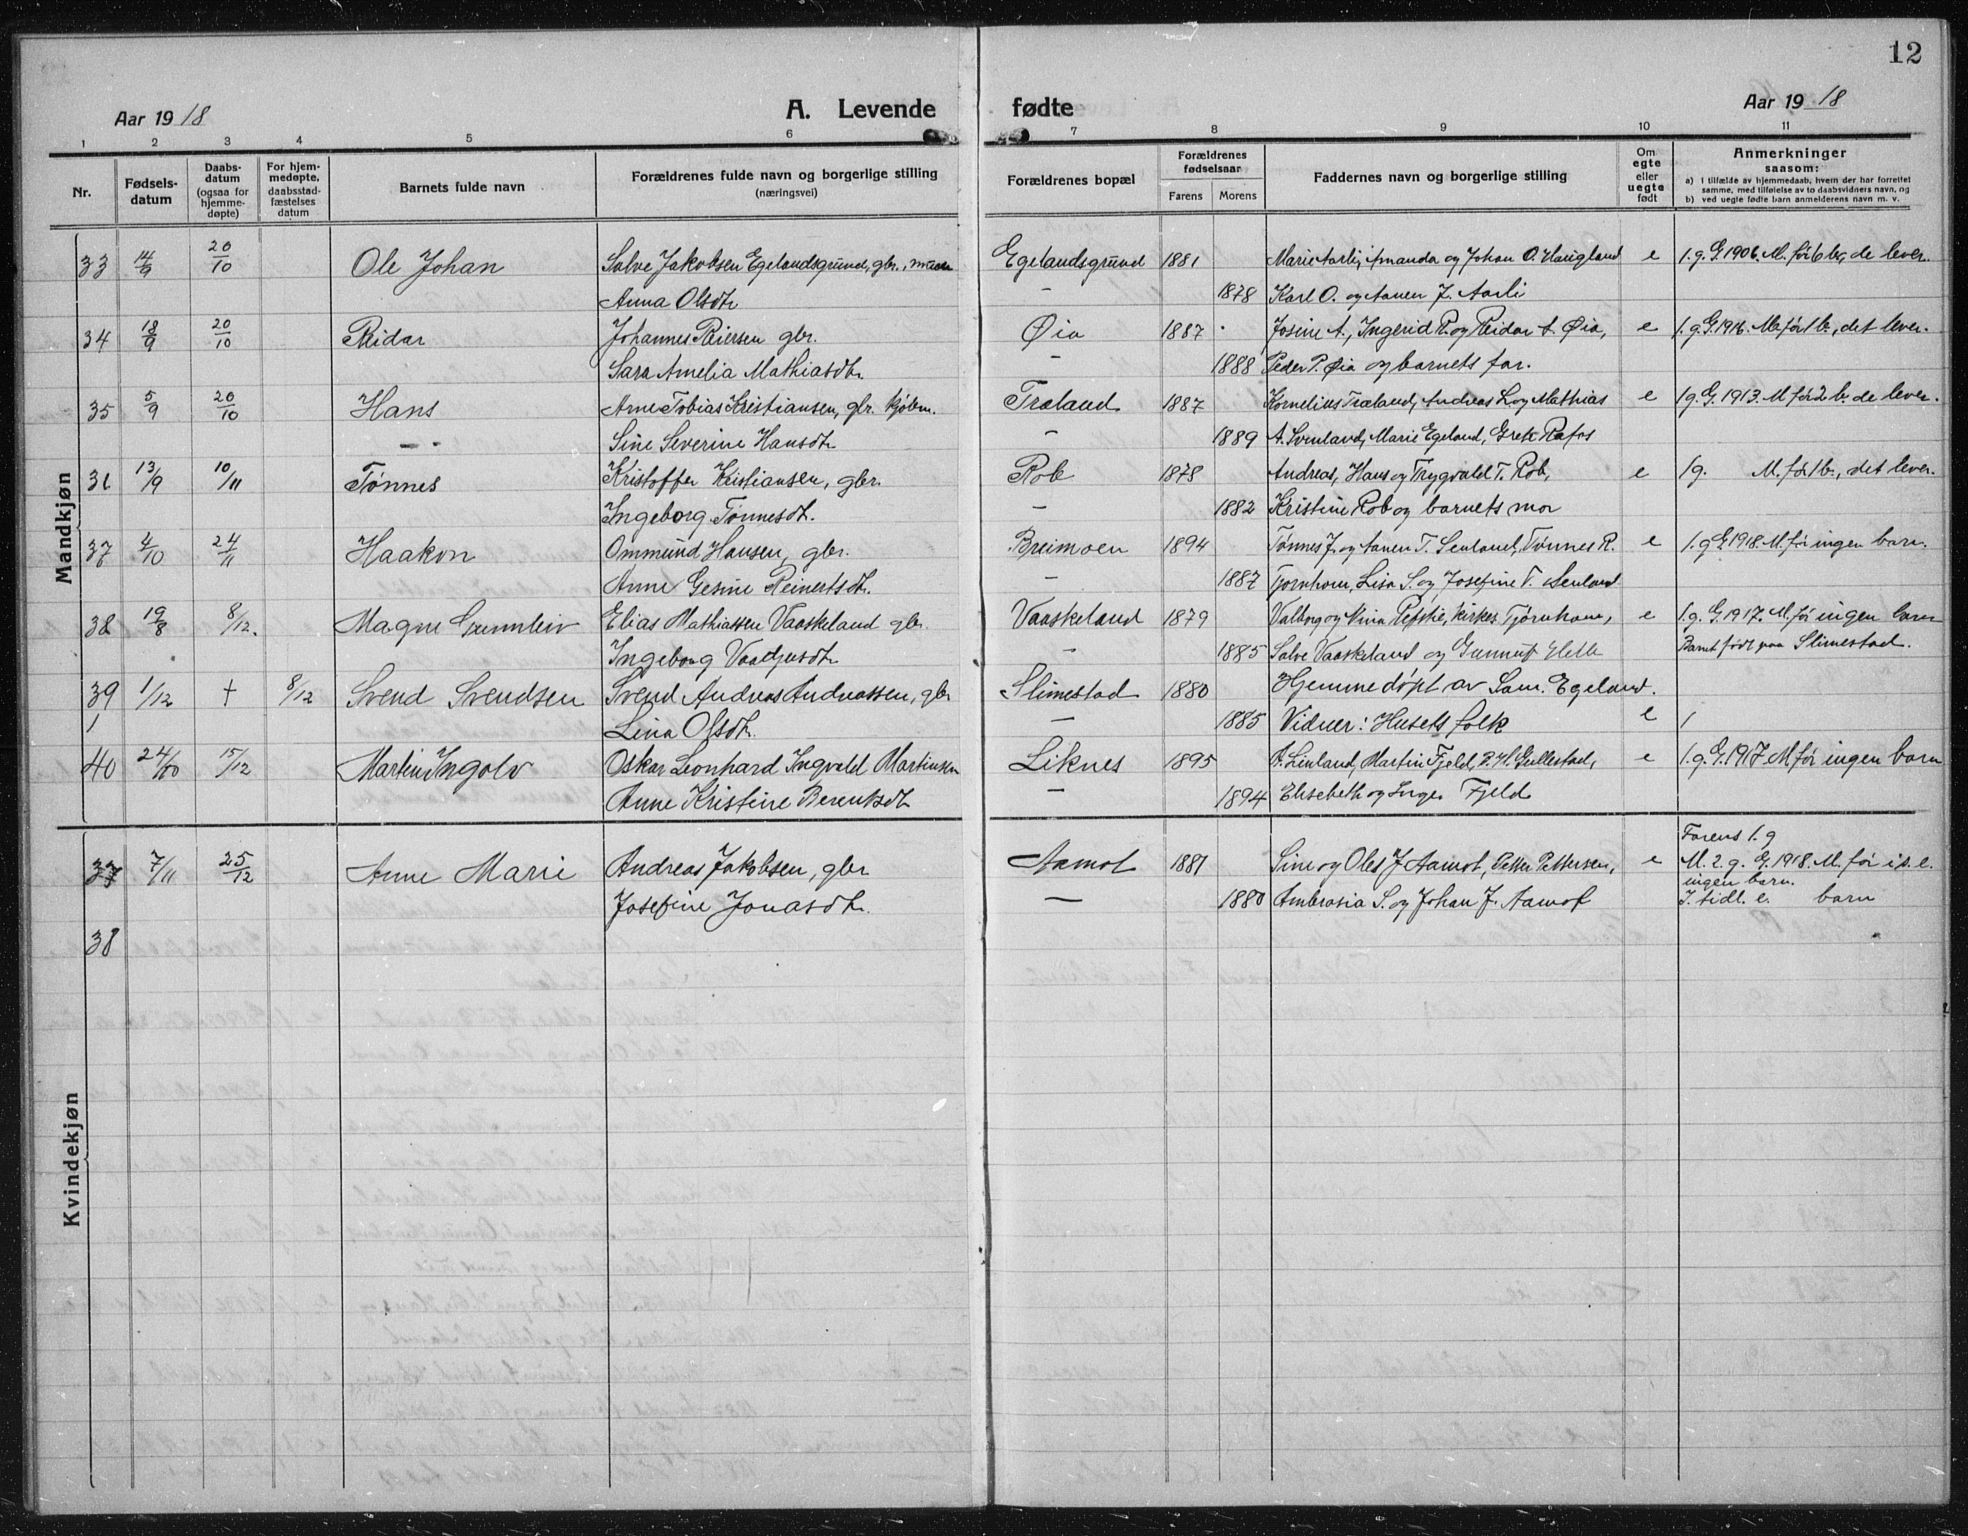 12
Aar 1918 A. Levende fødte Aar 1918
1 2 3 4 5 6 7 8 9 10 11
Nr. Fødsels-datum Daabs-datum (ogsaa for hjemme-døpte) For hjem-medøpte, daabsstad-fæstelses datum Barnets fulde navn Forældrenes fulde navn og borgerlige stilling (næringsvei) Forældrenes bopæl Forældrenes fødselsaar Farens Morens Faddernes navn og borgerlige stilling Om egte eller uegte født Anmerkninger saasom:
a) I tilfælde av hjemmedaab, hvem der har forrettet samme, med tilføielse av to daabsvidners navn, og
b) ved uegte fødte barn anmelderens navn m. v.
Mandkjøn
33 14/9 20/10 Ole Johan Salve Jakobsen Egelandsgrund, gbr., murer Egelandsgrund 1881 Marie Aarli, Amanda og Johan O. Haugland e 1.g. G. 1906. M. før 6 b., de lever.
Anna Olsdtr. — 1878 Karl O. og Aanen J. Aarli
34 18/9 20/10 Reidar Johannes Reiersen gbr. Øia 1887 Josine A., Ingerid R. og Reidar A. Øia, e 1.g. G. 1916. M. før 1 b., det lever.
Sara Amelia Mathiasdtr. 1888 Peder P. Øia og barnets far.
35 5/9 20/10 Hans Arne Tobias Kristiansen, gbr. Træland 1887 Kornelius Træland, Andreas L. og Mathias e 1g. G. 1913. M før 2 b. de lever.
— Sine Severine Hansdtr. — 1889 A. Svinland, Marie Egeland, Grete Rafos
36 13/9 10/11 Tønnes Kristoffer Kristiansen, gbr. Rob 1878 Andreas, Hans og Trygvald T. Rob, e 1g. M. før 1 b., det lever.
Ingeborg Tønnesdtr. — 1882 Kristine Rob og barnets mor
37 4/10 24/11 Haakon Ommund Hansen, gbr. Breimoen 1894 Tønnes J. og Aanen T. Senland, Tønnes R. e 1.g G. 1918. M. før ingen barn.
Anne Gesine Reinertsdtr. — 1887 Tjørnhom, Lisa S. og Josefine T. Senland
38 19/8 8/12. Magne Gunnleiv Elias Mathiassen Vaaskeland gbr. Vaaskeland 1879 Valborg og Nina Refstie, kirkes. Tjørnhom, e 1.g. G. 1917. M. før ingen barn
Ingeborg 1885 Salve Vaaskeland og Gunnuf Helle Barnet født paa Slimestad.
39 1/12 † 8/12 Svend Svendsen Svend Andreas Andreassen, gbr Slimestad 1880 Hjemmedøpt av Sam. Egeland.
1 Lina Olsdtr. — 1885 Vidner: Husets folk e 1
40 24/10 15/12 Martin Ingolv Oskar Leonhard Ingvald Martinsen Liknes 1895 A. Linland, Martin Fjeld, P. H. Gullestad, e 1.g. G. 1917 M. før ingen barn
Anne Kristine Berentsdtr — 1894 Elisebeth og Inger Fjeld
Kvindekjøn
37 7/11 25/12 Anne Marie Andreas Jakobsen, gbr Aamot 1881 Sine og Oles J. Aamot, Petter Pettersen, e Farens 1.g
M. 2.g. G. 1918. M. før i s. e. ingen barn.
Josefine Jonasdtr. — 1880 Ambrosia S. og Johan J. Aamot I tidl. e. barn
38